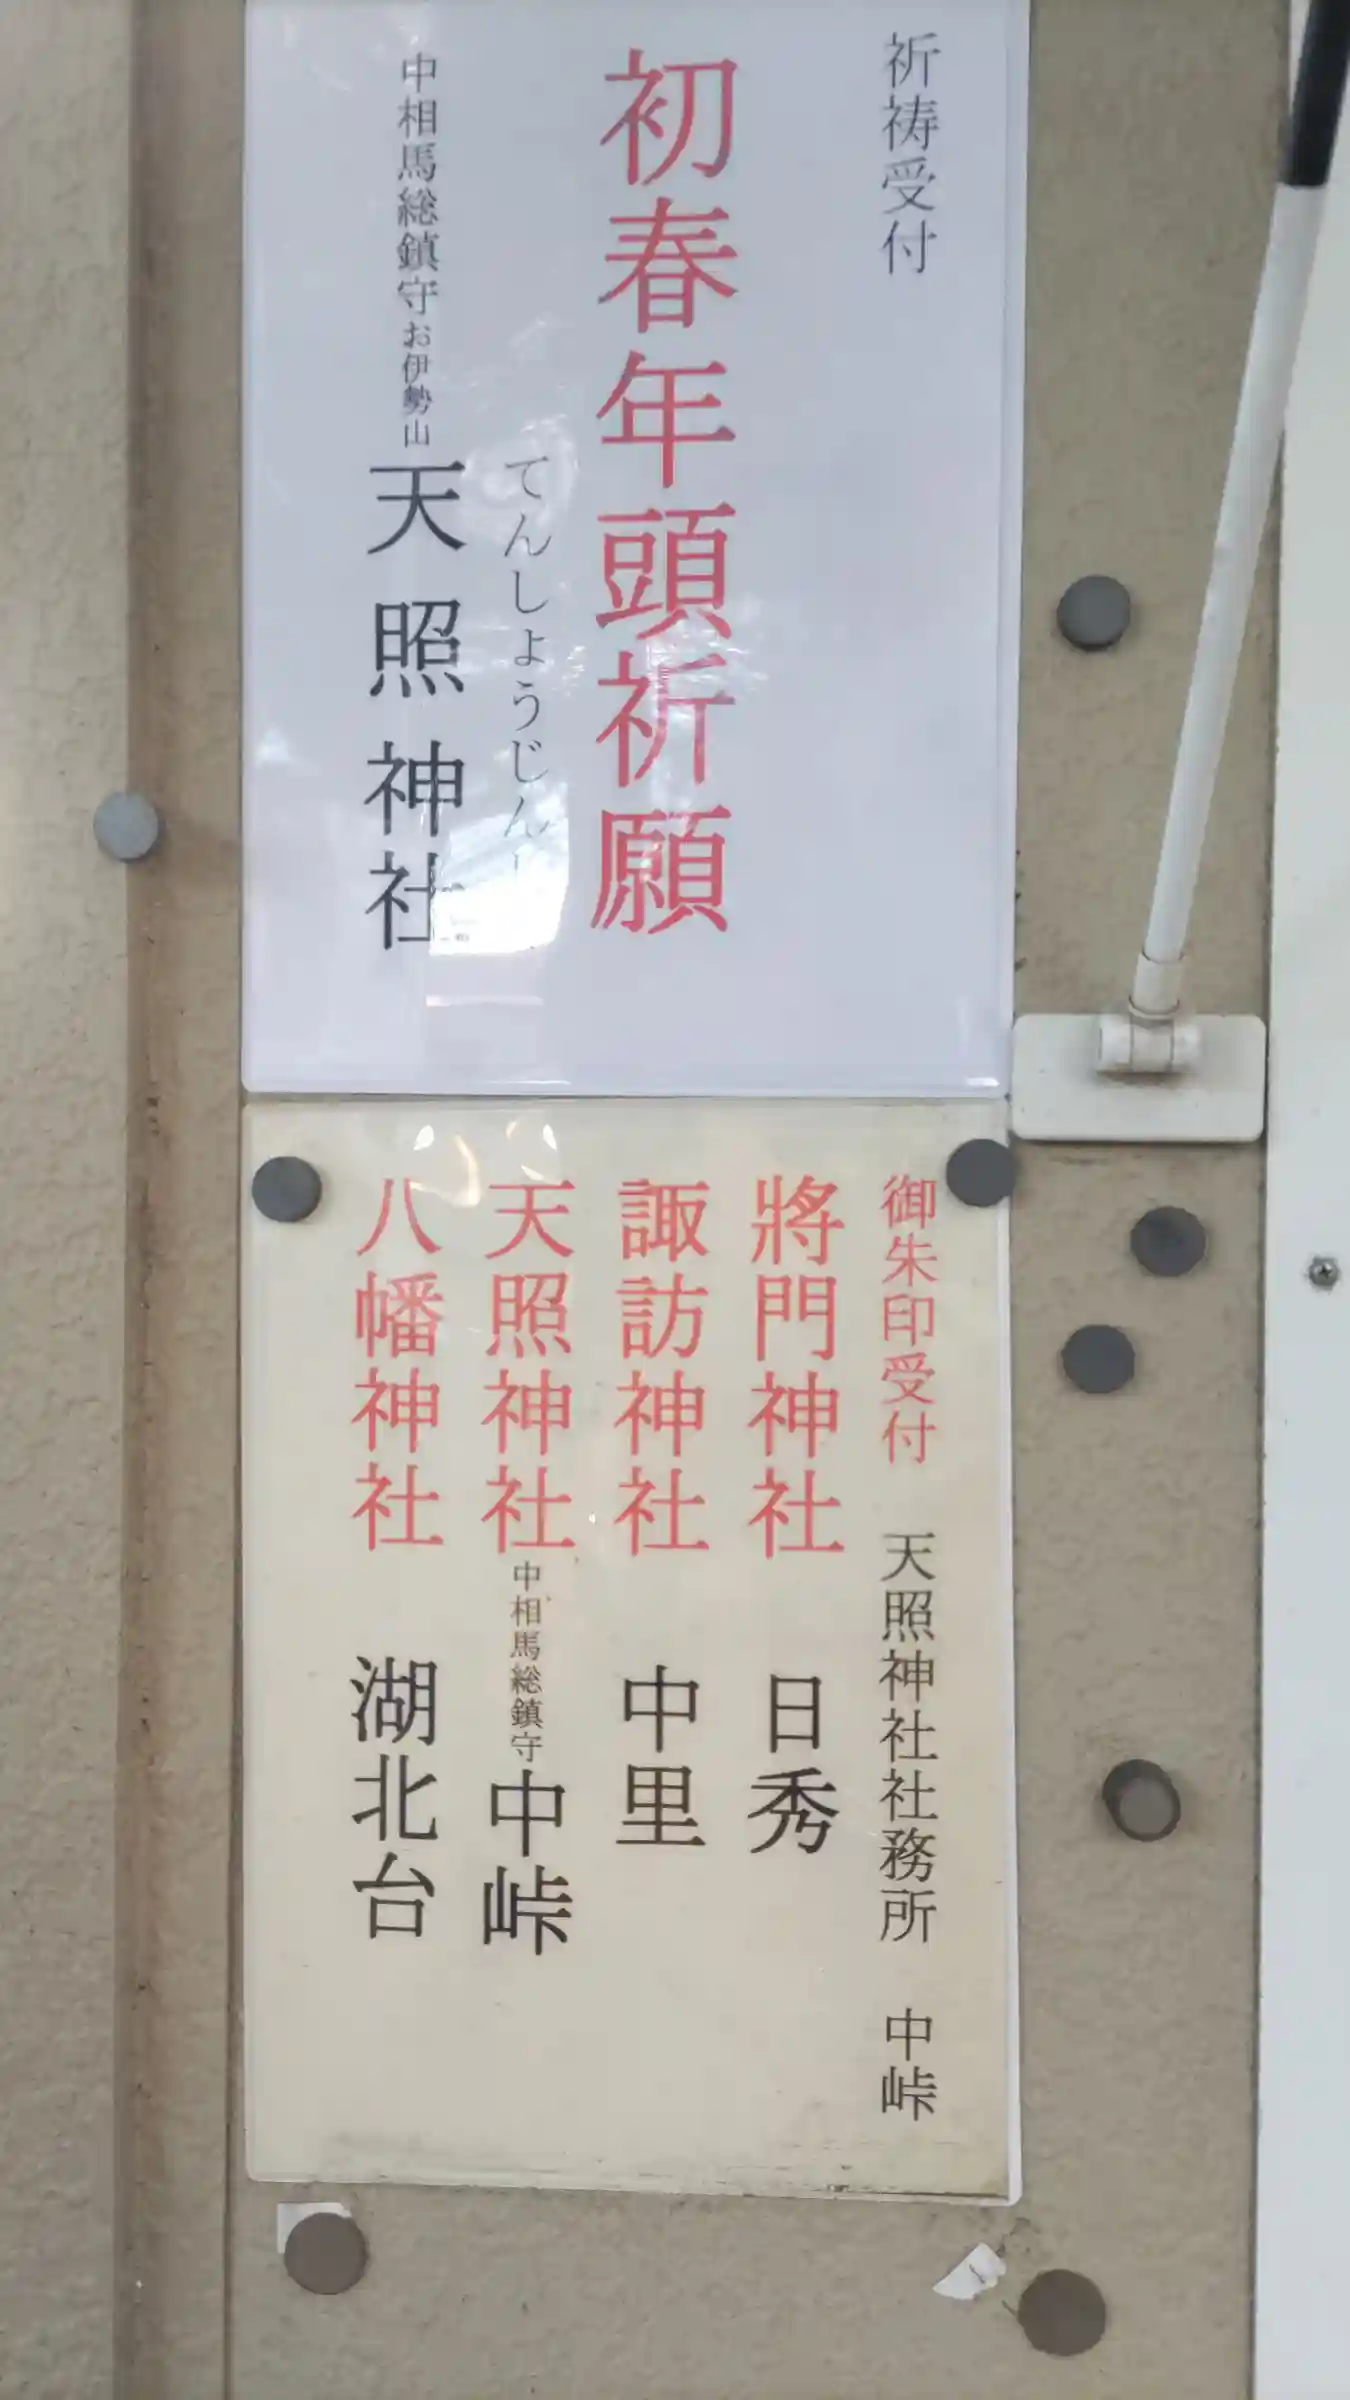 祈祷受付
初春年頭祈願
てんしょうじん
中相馬総鎮守お伊勢山 天照神社
御朱印受付 天照神社社務所 中峠
將門神社 日秀
諏訪神社 中里
天照神社 中相馬総鎮守 中峠
八幡神社 湖北台